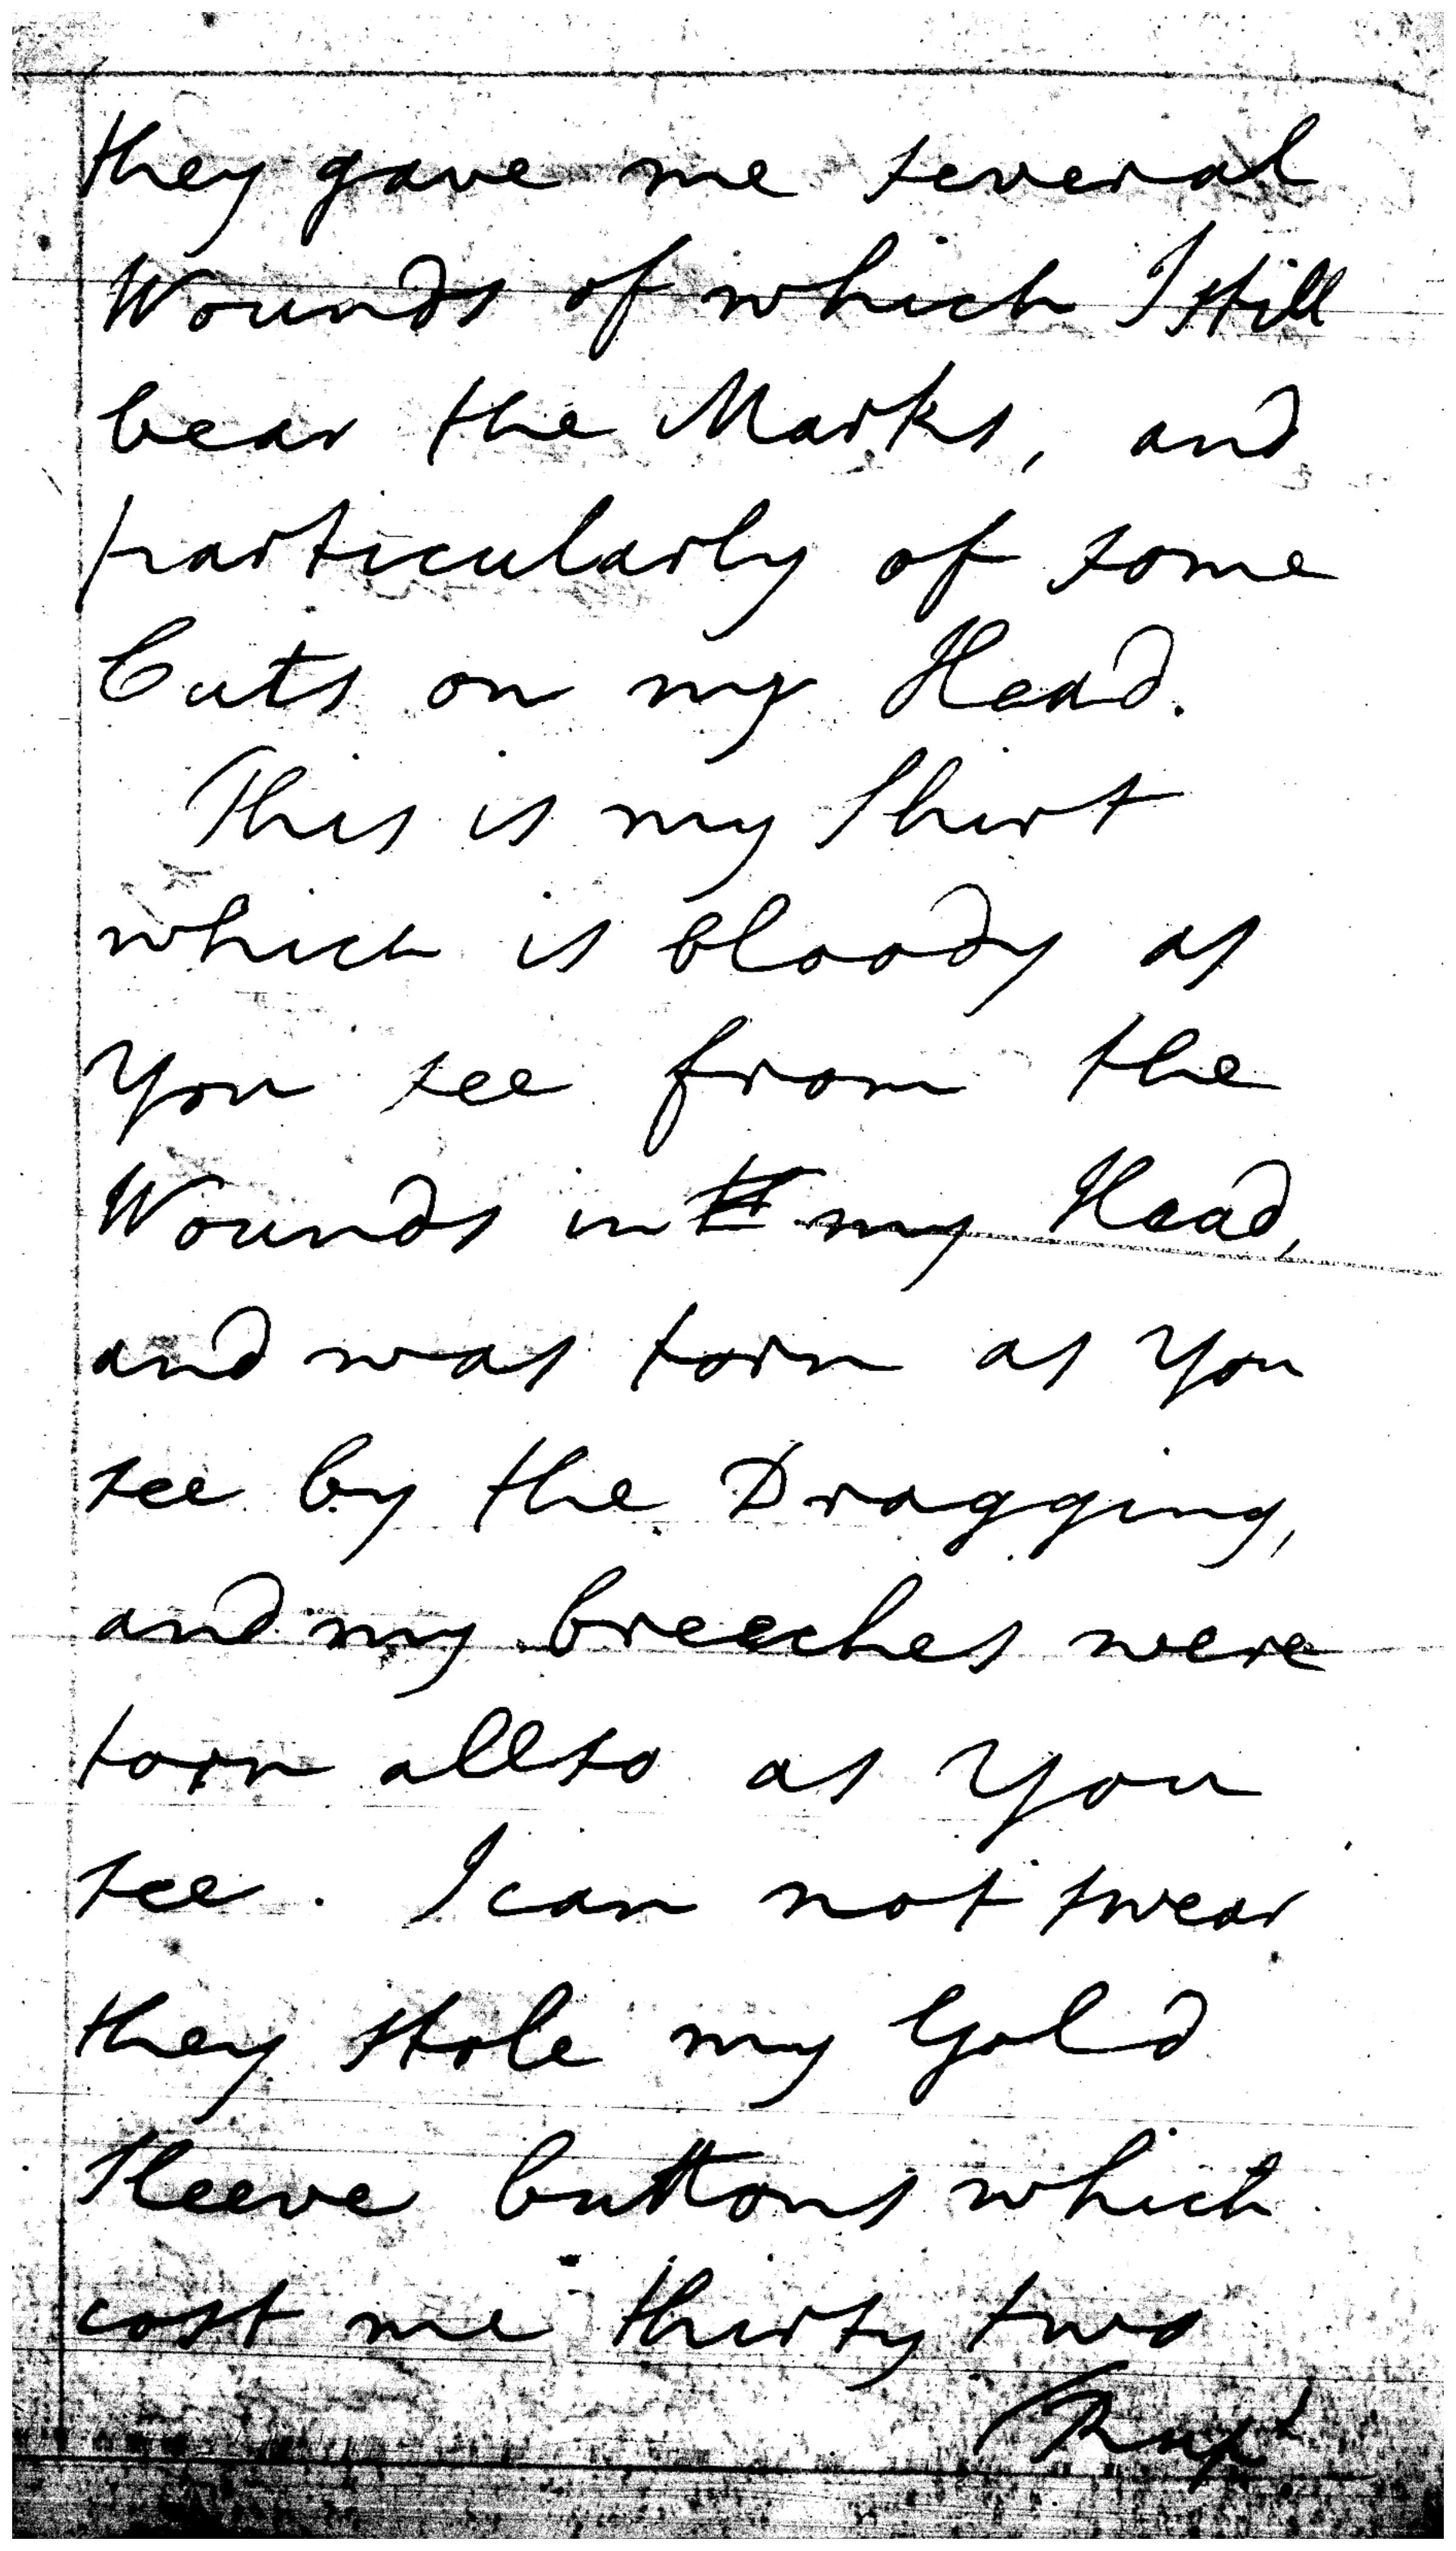 they gave me several
Wounds of which I still
bear the Marks, and
particularly of some
Cuts on my Head.
This is my Shirt
which is bloody as
You see from the
Wounds in my Head,
and was torn as You
see by the Dragging,
and my breeches were
torn allso as You
see. I can not swear
they stole my Gold
Sleeve buttons which
cost me thirty two